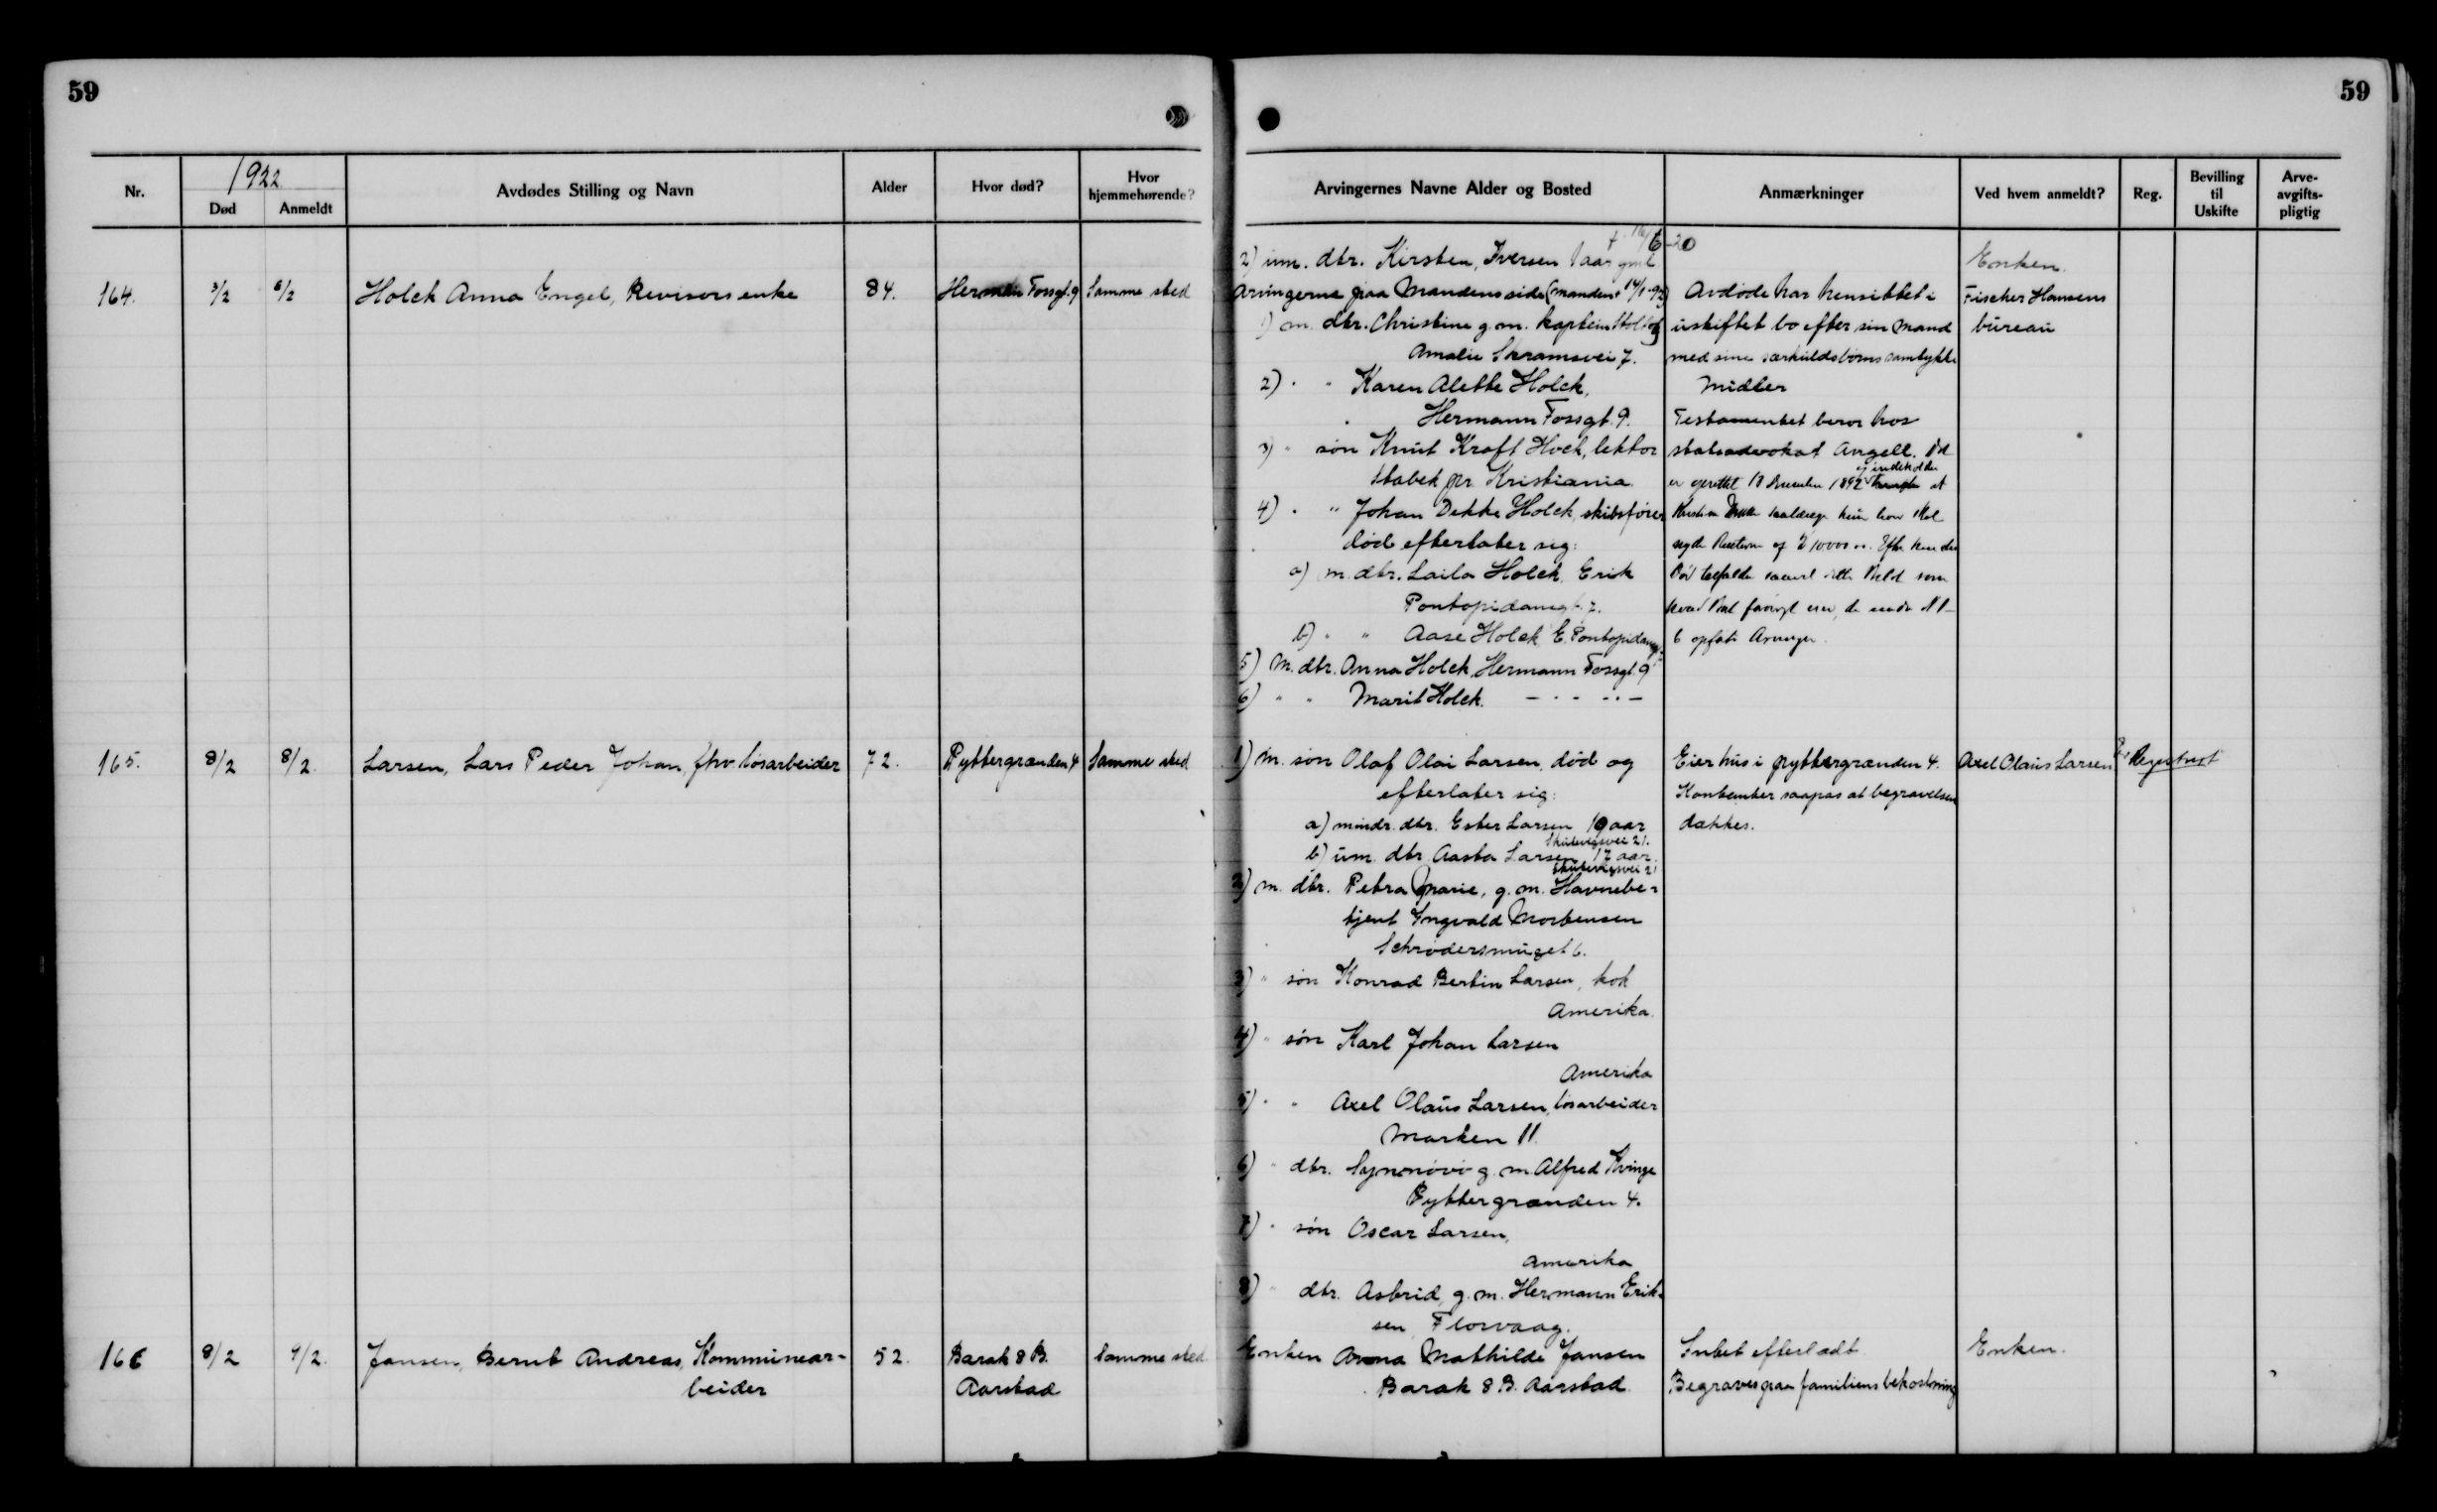 59
59
1922
Nr.
Død
Anmeldt
Avdødes Stilling og Navn
Alder
Hvor død?
Hvor hjemmehørende?
Arvingernes Navne Alder og Bosted
Anmærkninger
Ved hvem anmeldt?
Reg.
Bevilling til Uskifte
Arve-avgifts-pligtig
2) um. dtr. Kirsten, Iversen 1 aar gml.
Enken.
164. 3/2 6/2 Holck Anna Engel, Revisors enke 84. Hermann Fossgt. 9 Samme sted
Arvingerne paa Mandens side (manden + 14/1-92)
1) m. dtr. Christine g.m. kaptein
Amalie Skramsvei 7.
2) " " Karen Alette Holck,
Hermann Fossgt. 9.
3) " søn Knut Kraft Hock, lektor
Stabek pr Kristiania.
4) " " Johan Dekke Holck, skibsfører
død efterlater sig:
a) m. dtr. Laila Holck, Erik
Pontopidansgt. 7.
b) " " Aase Holck E. Pontopidansgt.
5) m. dtr. Anna Holck Hermann Fossgt. 9
6) " " Marit Holck. - " - " -
Avdøde har hensittet i
uskiftet bo efter sin mand
med sine særkuldsbørns samtykke
Midler
Testamentet beror hos
statsadvokat Angell. Det
er oprettet 13 December 1892
6 opførte Arvinger.
Fischer Hansens
bureau
165. 8/2 8/2. Larsen, Lars Peder Johan, fhv. løsarbeider 72. Pyttergrænden 4 Samme sted
1) m. søn Olaf Olai Larsen, død og
efterlater sig:
a) mindr. dtr. Ester Larsen 19 aar
Skutevigsvei 21.
b) um. dtr. Aasta Larsen 17 aar.
Skutevigsvei 21
2) m. dtr. Petra Marie, g.m. Havnebe-
tjent Ingvald Mortensen
Schrødersmuget 6.
3) " søn Konrad Bertin Larsen, kok
Amerika.
4) " søn Karl Johan Larsen
Amerika
5) " " Axel Olaus Larsen, løsarbeider
Marken 11.
6) " dtr. Synnøve g.m. Alfred Kvinge
Pyttergrænden 4.
7) " søn Oscar Larsen,
Amerika
8) " dtr. Astrid, g.m. Hermann Erik-
sen, Florvaag.
Eier hus i Pyttergrænden 4.
Kontanter saapas at begravelsen
dækkes.
Axel Olaus Larsen
Registrert
166 8/2 9/2. Jansen, Bernt Andreas, Kommunear-
beider
52. Barak 8 B.
Aarstad
Samme sted
Enken Anna Mathilde Jansen
Barak 8 B. Aarstad.
Intet efterladt.
Begraves paa familiens bekostning
Enken.